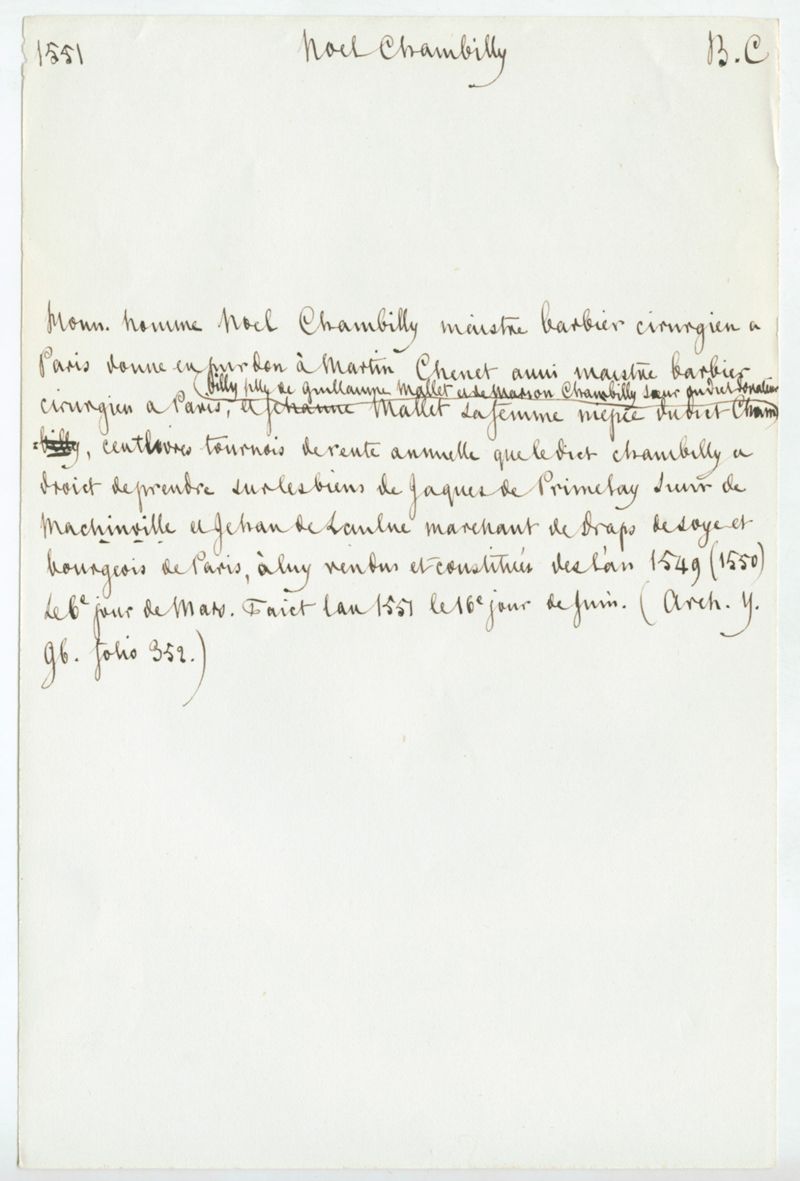 1551 Noel Chambilly B. C
Monn. homme Noel Chambilly maistre barbier cirurgien a
Paris donne en pur don à Martin Chenet aussi maistre barbier
billy fille de Guillaume Mallet et de Marson Chambilly sœur du dict donateur
cirurgien a Paris, et Jehanne Mallet sa femme niepce du dict Cham
billy, cent livres tournois de rente annuelle que le dict Chambilly a
droict de prendre sur les biens de Jaques de Primetay Sieur de
Machinville et Jehan de Laulne marchant de draps de soye et
bourgeois de Paris, à luy vendus et constitués des l'an 1549 (1550)
Le 6e jour de Mars. Faict lan 1551 le 16e jour de Juin. (Arch. Y.
96. folio 352.)